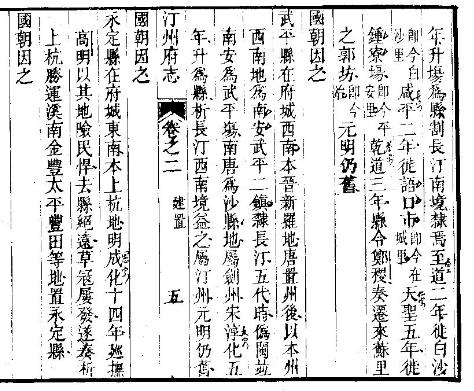 年升塲爲縣割長汀南境隸焉至道二年徙白沙
即今白沙里咸平二年徙語口市即今在城里天聖五年徙
鍾寮塲即今平安里乾道三年縣令鄭稷奏遷來蘇里
之郭坊即今治元明仍舊
國朝因之
武平縣在府城西南本晉新羅地唐置州後以本州
西南地爲南安武平二鎮隸長汀五代時僞閩並
南安爲武平塲南唐爲沙縣地屬劍州宋淳化五
年升爲縣析長汀西南境益之屬汀州元明仍舊
汀州府志 卷之二 建置 五
國朝因之
永定縣在府城東南本上杭地明成化十四年廵撫
高明以其地險民悍去縣絕遠草宼屢發遂奏析
上杭勝運溪南金豐太平豐田等地置永定縣
國朝因之